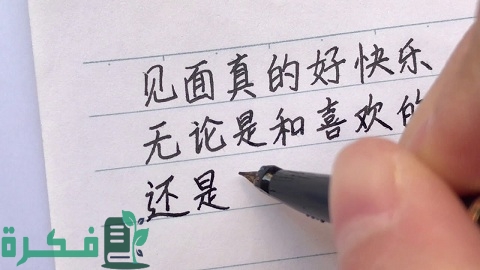 见面真的好快乐
无论是和喜欢的
还是
فكرة